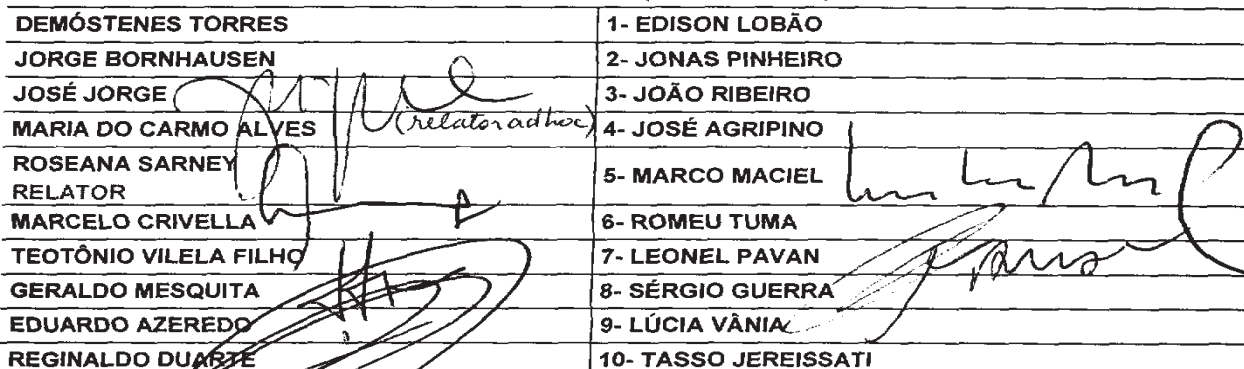 DEMÓSTENES TORRES 1- EDISON LOBÃO
JORGE BORNHAUSEN 2- JONAS PINHEIRO
JOSÉ JORGE 3- JOÃO RIBEIRO
(relator ad hoc)
MARIA DO CARMO ALVES 4- JOSÉ AGRIPINO
ROSEANA SARNEY
RELATOR 5- MARCO MACIEL
MARCELO CRIVELLA 6- ROMEU TUMA
TEOTÔNIO VILELA FILHO 7- LEONEL PAVAN
GERALDO MESQUITA 8- SÉRGIO GUERRA
EDUARDO AZEREDO 9- LÚCIA VÂNIA
REGINALDO DUARTE 10- TASSO JEREISSATI